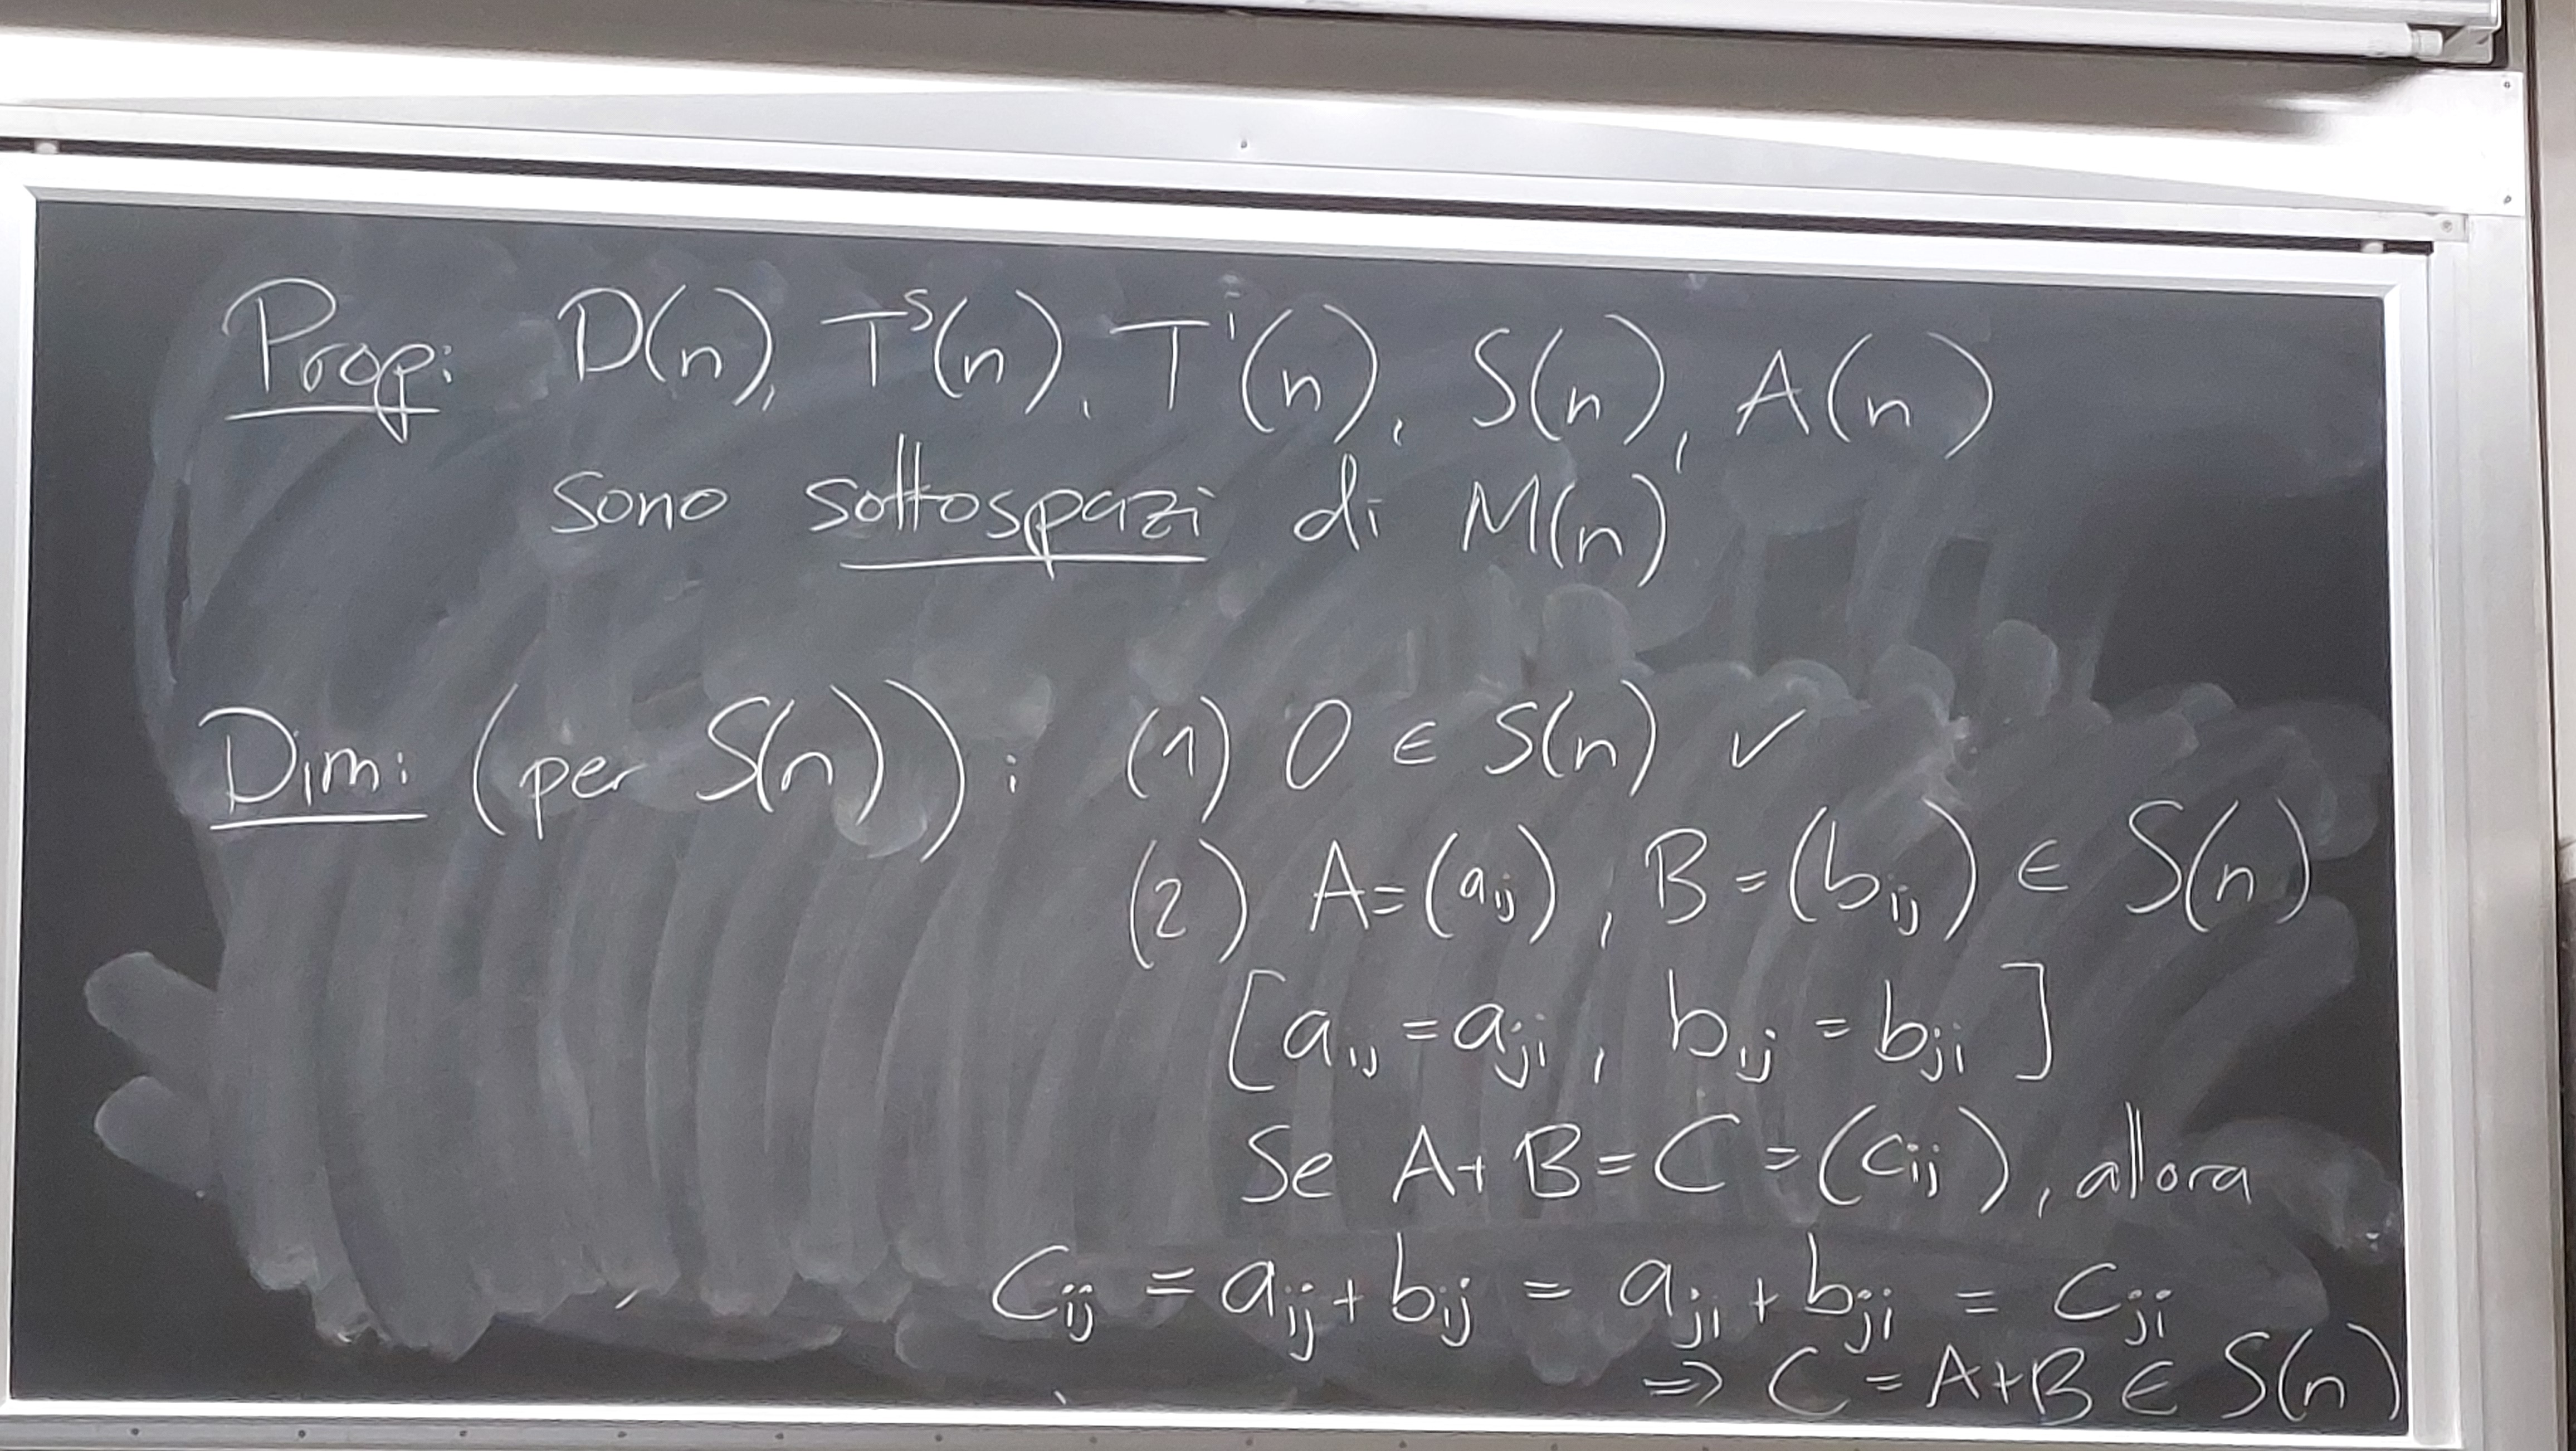 Prop: D(n), Tˢ(n), Tⁱ(n), S(n), A(n)
sono sottospazi di M(n)
Dim: (per S(n)): (1) 0 ∈ S(n) ✓
(2) A=(aᵢⱼ), B=(bᵢⱼ) ∈ S(n)
[aᵢⱼ = aⱼᵢ, bᵢⱼ = bⱼᵢ]
Se A+B=C=(cᵢⱼ), allora
Cᵢⱼ = aᵢⱼ+bᵢⱼ = aⱼᵢ+bⱼᵢ = Cⱼᵢ
⇒ C = A+B ∈ S(n)